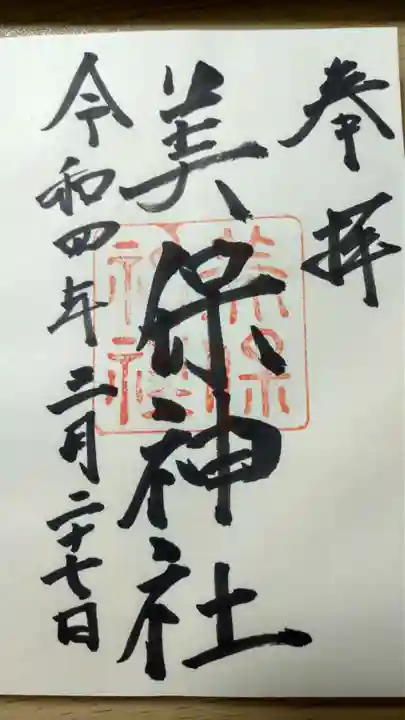 奉拝
美保神社
美保神社
令和四年三月二十七日